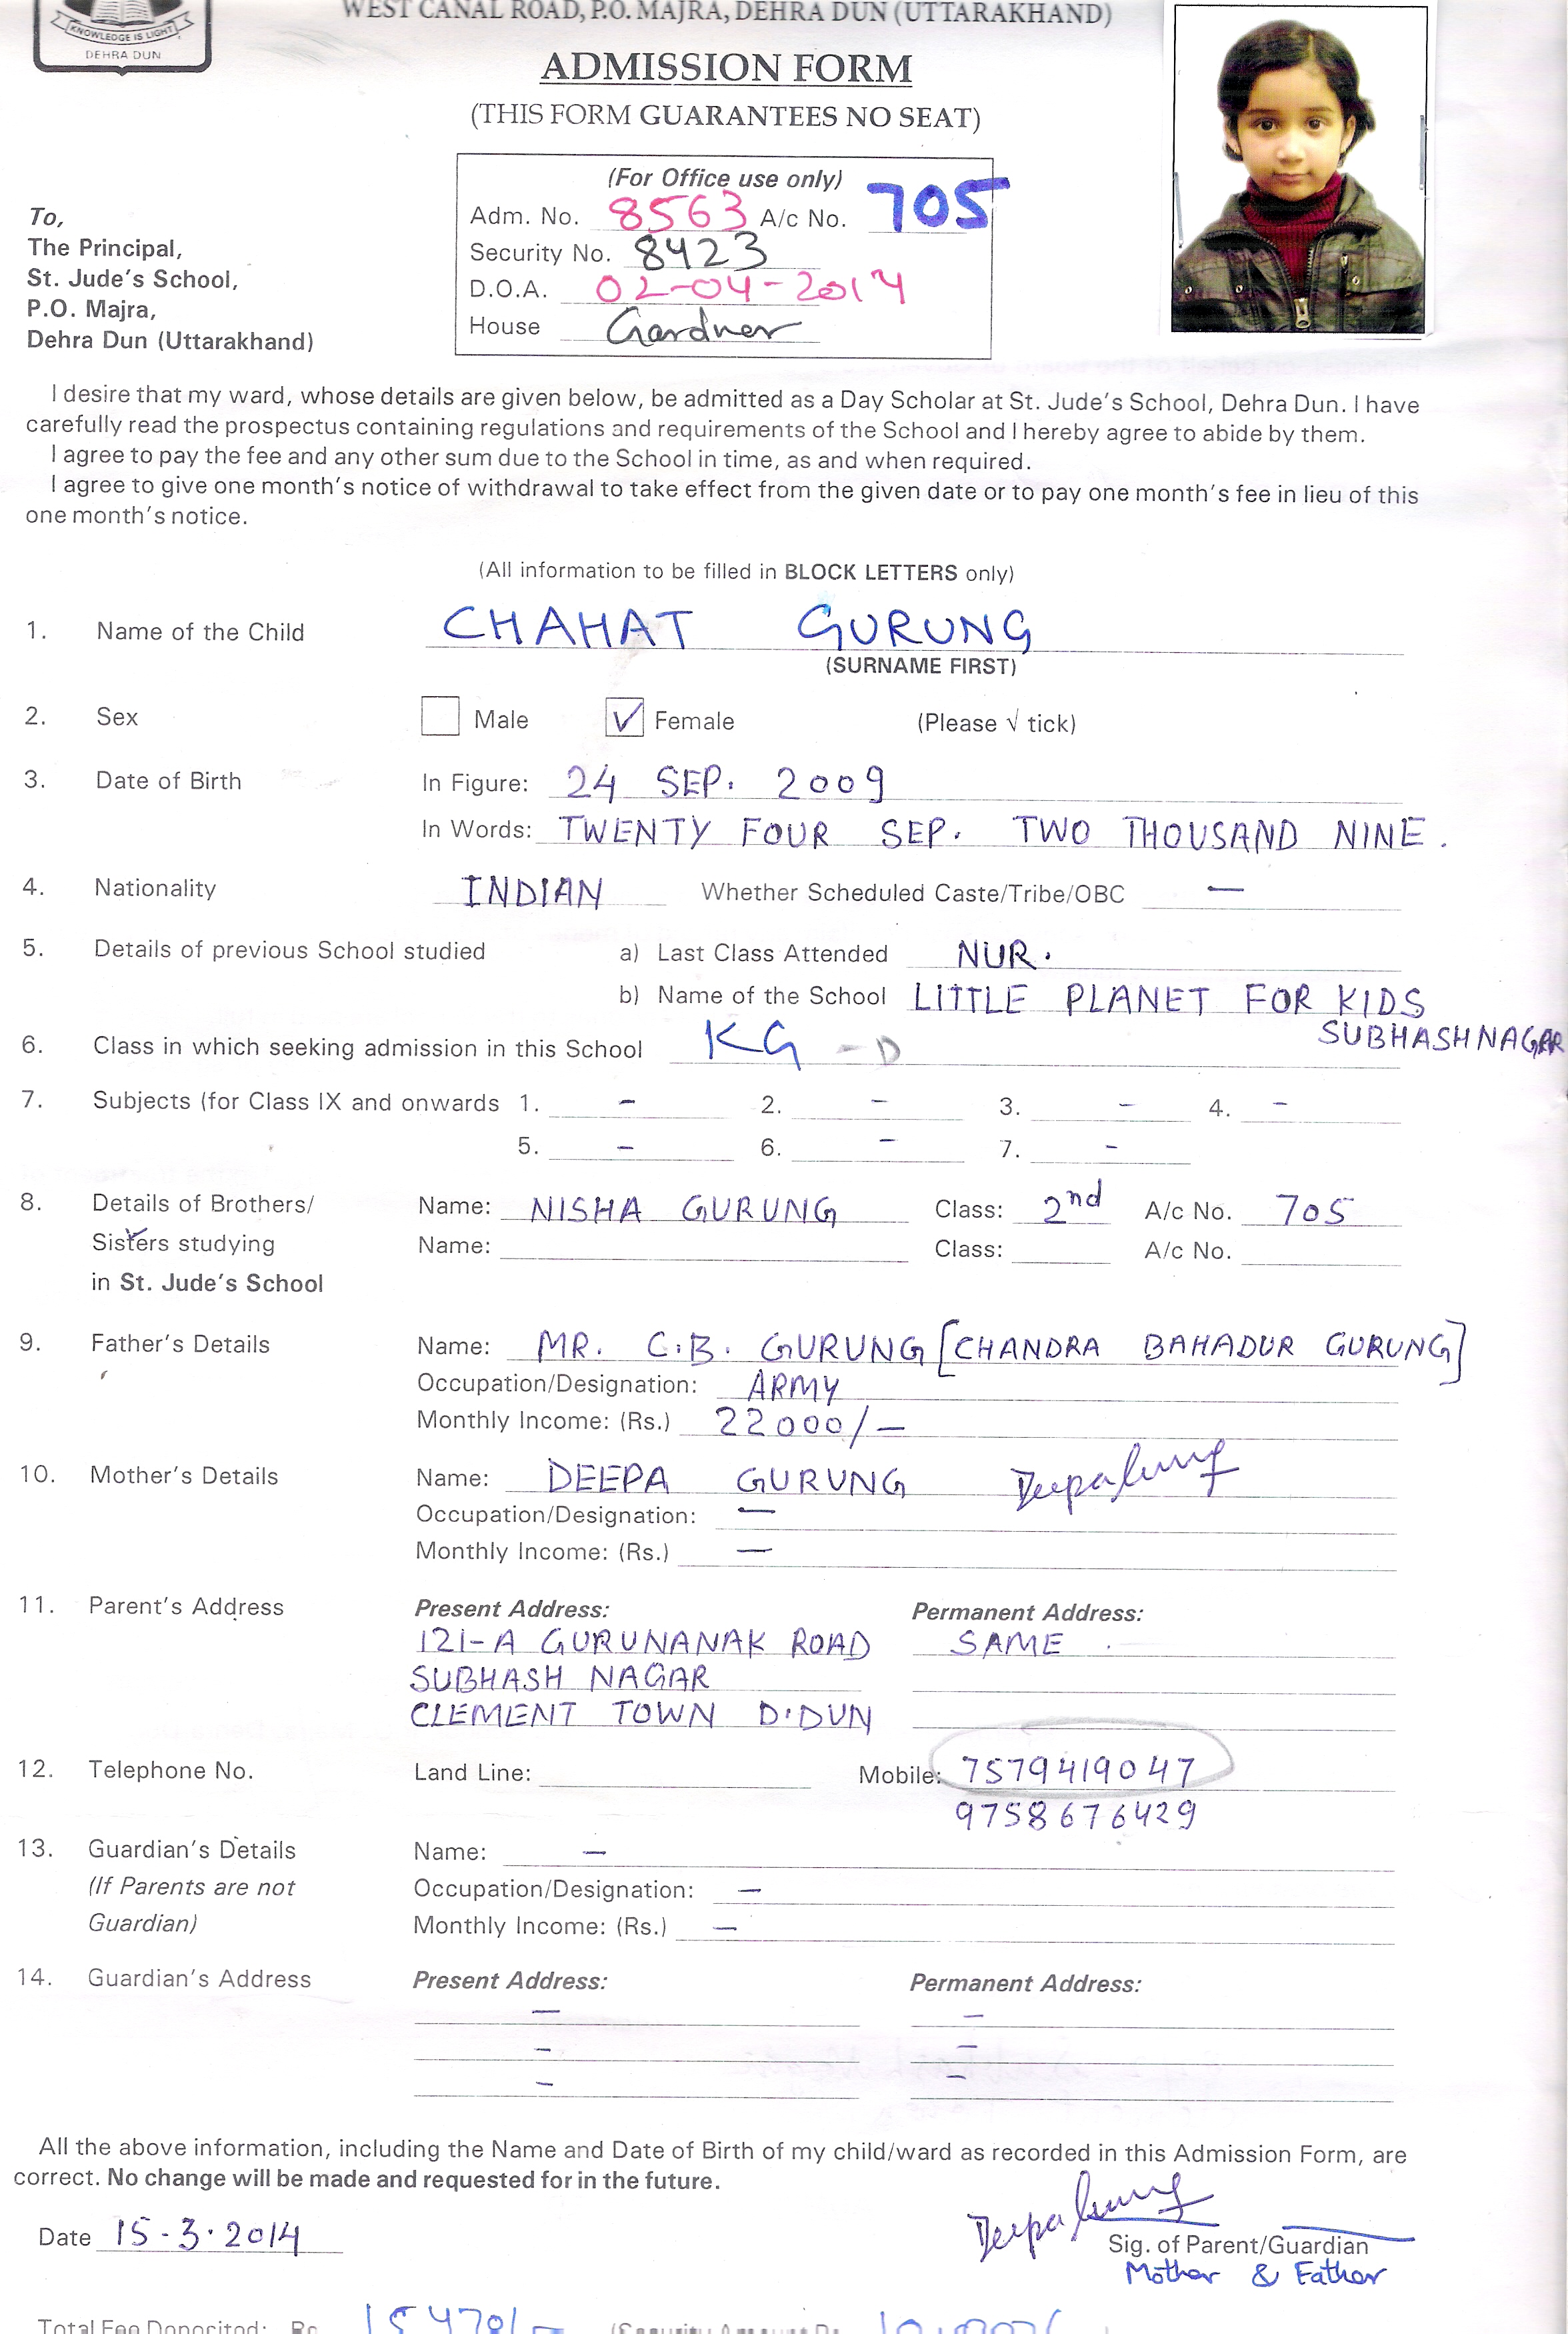 WEST CANAL ROAD, P.O. MAJRA, DEHRA DUN (UTTARAKHAND)
KNOWLEDGE IS LIGHT
DEHRA DUN
ADMISSION FORM
(THIS FORM GUARANTEES NO SEAT)
(For Office use only)
Adm. No. 8563 A/c No. 705
Security No. 8423
D.O.A. 02-04-2014
House Gardner
To,
The Principal,
St. Jude's School,
P.O. Majra,
Dehra Dun (Uttarakhand)
I desire that my ward, whose details are given below, be admitted as a Day Scholar at St. Jude's School, Dehra Dun. I have
carefully read the prospectus containing regulations and requirements of the School and I hereby agree to abide by them.
I agree to pay the fee and any other sum due to the School in time, as and when required.
I agree to give one month's notice of withdrawal to take effect from the given date or to pay one month's fee in lieu of this
one month's notice.
(All information to be filled in BLOCK LETTERS only)
1. Name of the Child CHAHAT GURUNG
(SURNAME FIRST)
2. Sex Male ✓ Female (Please √ tick)
3. Date of Birth In Figure: 24 SEP. 2009
In Words: TWENTY FOUR SEP. TWO THOUSAND NINE.
4. Nationality INDIAN Whether Scheduled Caste/Tribe/OBC —
5. Details of previous School studied a) Last Class Attended NUR.
b) Name of the School LITTLE PLANET FOR KIDS
SUBHASHNAGAR
6. Class in which seeking admission in this School KG - D
7. Subjects (for Class IX and onwards 1. - 2. - 3. - 4. -
5. - 6. - 7. -
8. Details of Brothers/ Name: NISHA GURUNG Class: 2nd A/c No. 705
Sisters studying Name: Class: A/c No.
in St. Jude's School
9. Father's Details Name: MR. C.B. GURUNG [CHANDRA BAHADUR GURUNG]
Occupation/Designation: ARMY
Monthly Income: (Rs.) 22000/-
10. Mother's Details Name: DEEPA GURUNG Deepa Gurung
Occupation/Designation: —
Monthly Income: (Rs.) —
11. Parent's Address Present Address: Permanent Address:
121-A GURUNANAK ROAD SAME
SUBHASH NAGAR
CLEMENT TOWN D'DUN
12. Telephone No. Land Line: Mobile: 7579419047
9758676429
13. Guardian's Details Name: —
(If Parents are not Occupation/Designation: —
Guardian) Monthly Income: (Rs.) —
14. Guardian's Address Present Address: Permanent Address:
— —
— —
— —
All the above information, including the Name and Date of Birth of my child/ward as recorded in this Admission Form, are
correct. No change will be made and requested for in the future.
Date 15-3-2014 Deepa Gurung
Sig. of Parent/Guardian
Mother & Father
Total Fee Deposited: Rs.